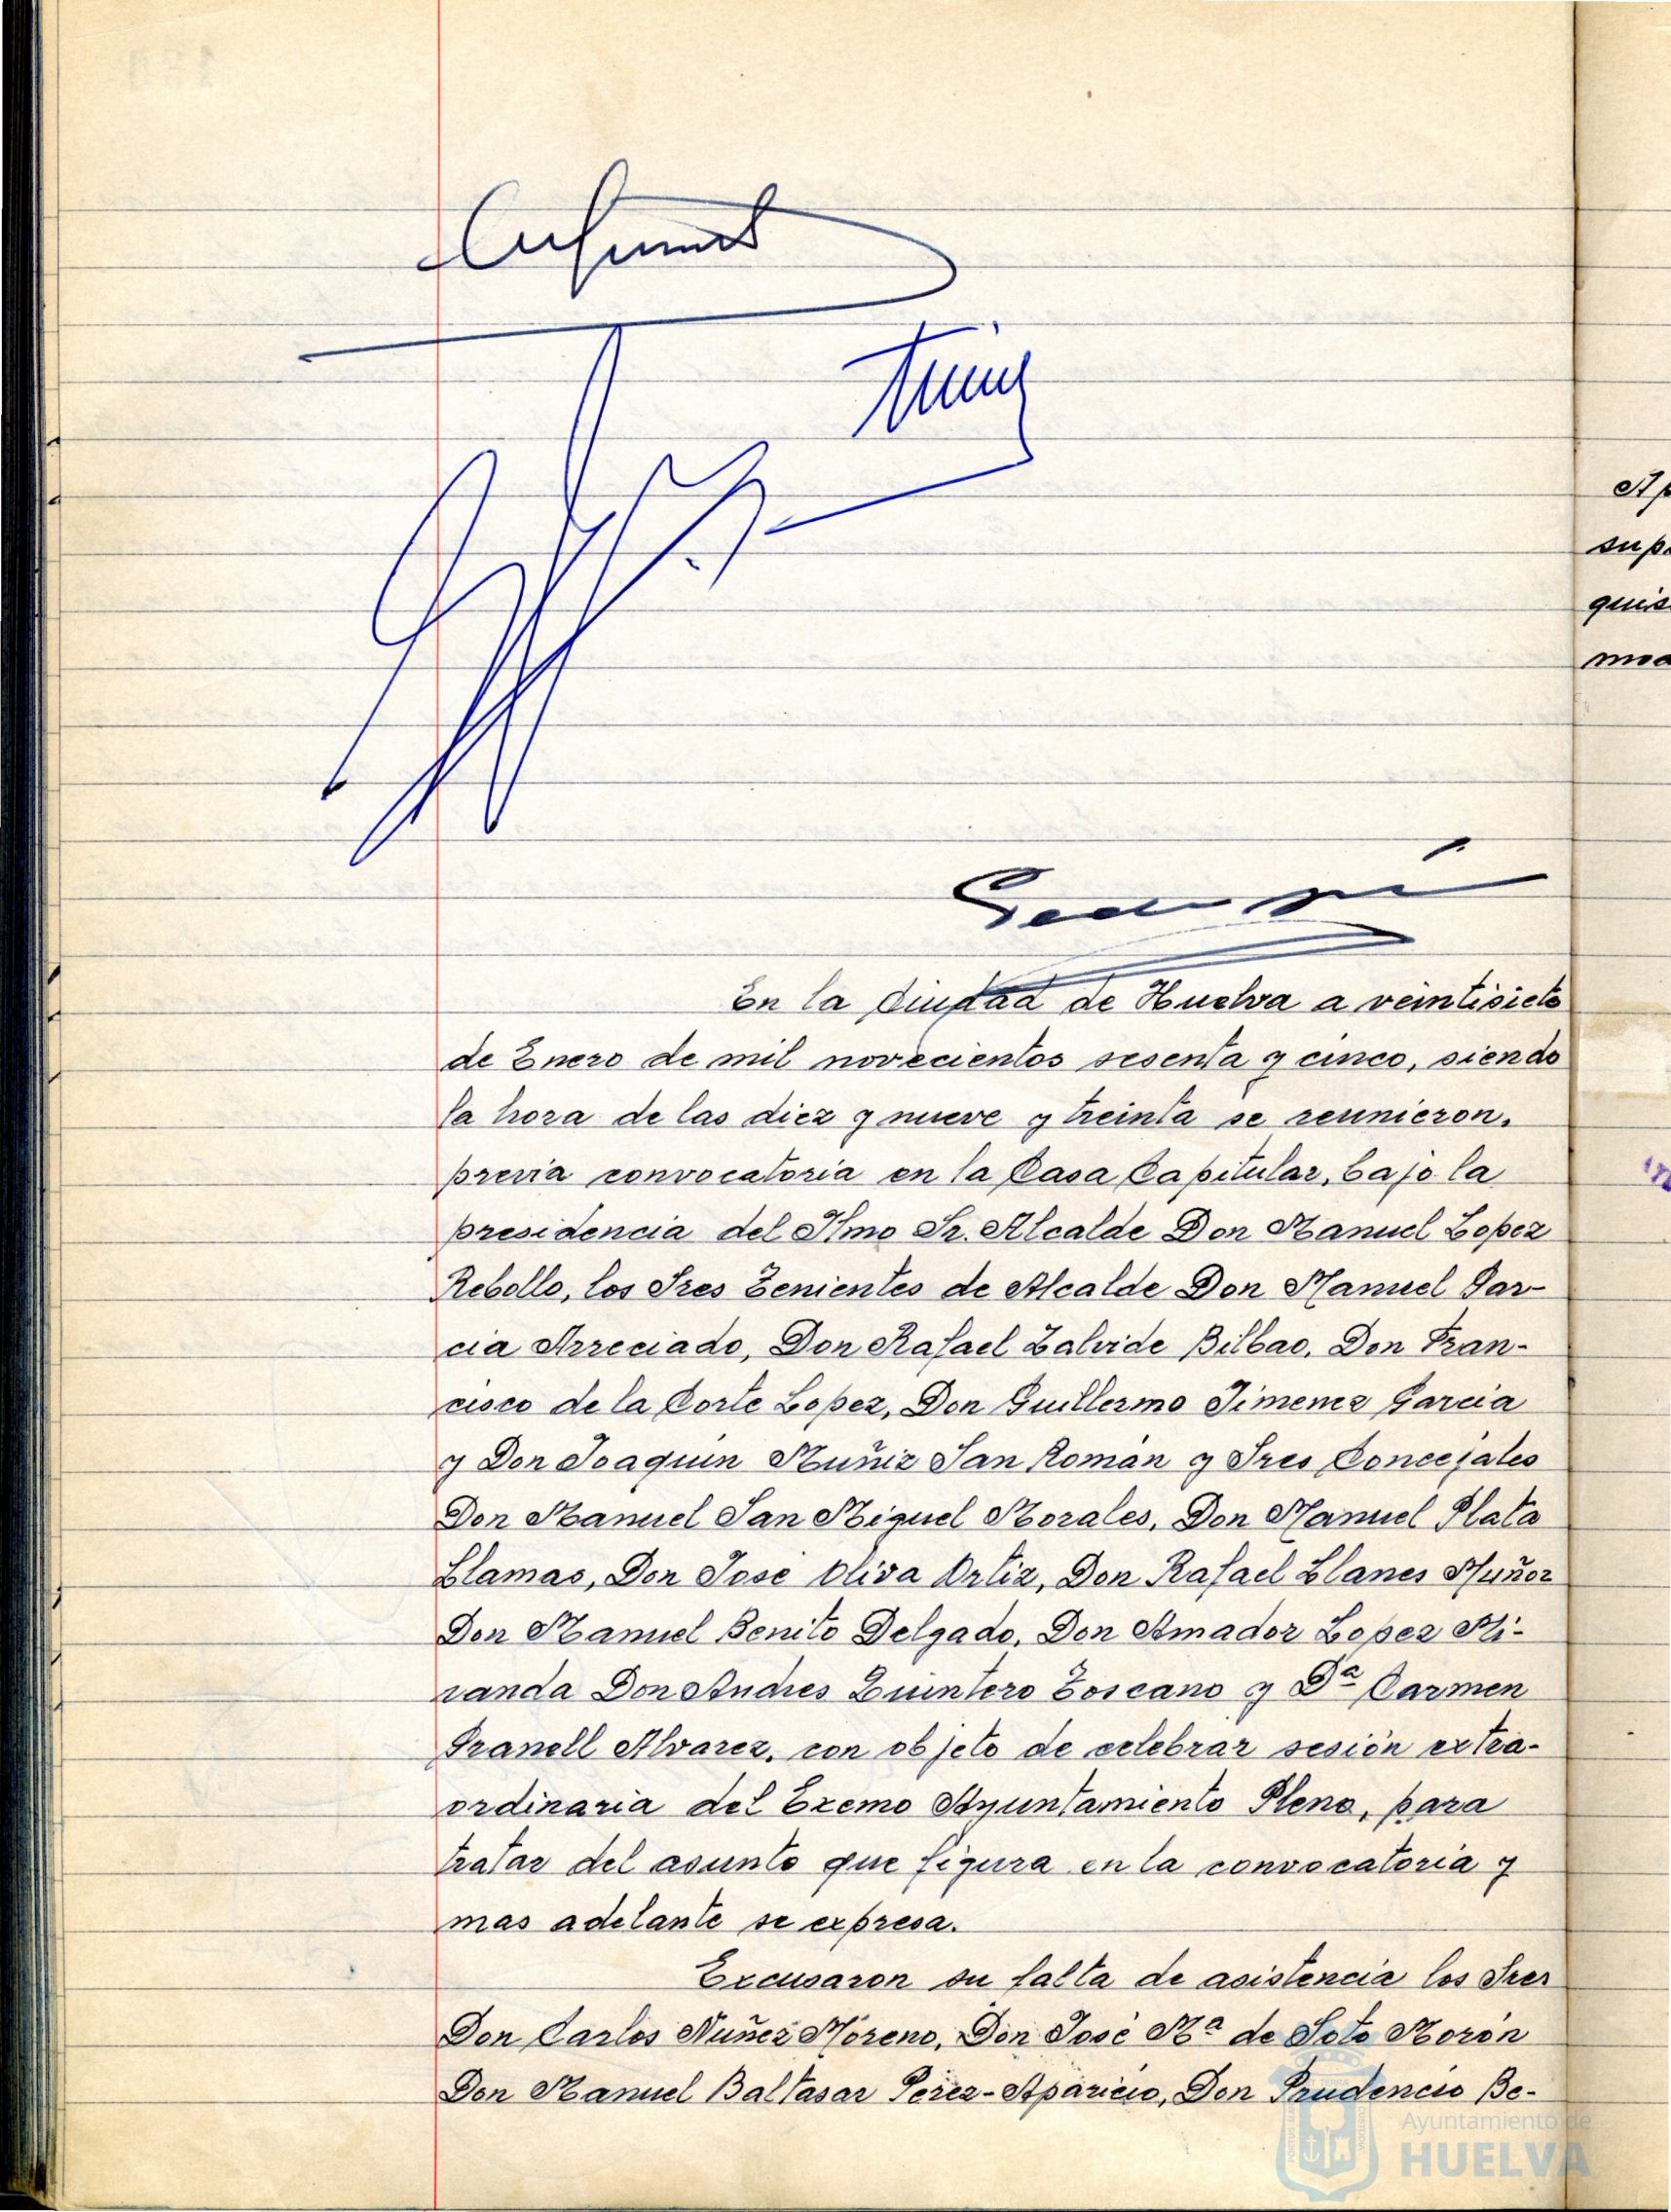 En la Ciudad de Huelva a veintisiete
de Enero de mil novecientos sesenta y cinco, siendo
la hora de las diez y nueve y treinta se reunieron,
previa convocatoria en la Casa Capitular, bajo la
presidencia del Ilmo Sr. Alcalde Don Manuel Lopez
Rebollo, los Sres Tenientes de Alcalde Don Manuel Gar-
cia Arreciado, Don Rafael Zalvide Bilbao, Don Fran-
cisco de la Corte Lopez, Don Guillermo Jimenez Garcia
y Don Joaquin Muñiz San Román y Sres Concejales
Don Manuel San Miguel Morales, Don Manuel Plata
Llamas, Don José Oliva Ortiz, Don Rafael Llanes Muñoz
Don Manuel Benito Delgado, Don Amador Lopez Mi-
randa Don Andres Quintero Toscano y Dª Carmen
Granell Alvarez, con objeto de celebrar sesión extra-
ordinaria del Excmo Ayuntamiento Pleno, para
tratar del asunto que figura en la convocatoria y
mas adelante se expresa.
Excusaron su falta de asistencia los Sres
Don Carlos Nuñez Moreno, Don José Mª de Soto Morón
Don Manuel Baltasar Perez-Aparicio, Don Prudencio Be-
Ayuntamiento de
HUELVA